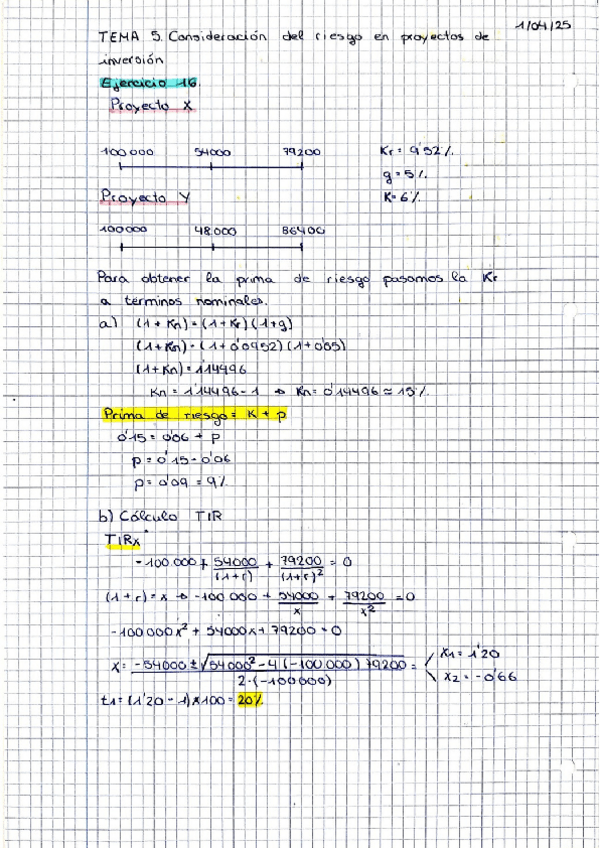 1/04/25
TEMA 5. Consideración del riesgo en proyectos de
inversión
Ejercicio 16.
Proyecto X
100 000 54000 79200 Kr = 9'52%
g = 5%
Proyecto Y K= 6%
100000 48.000 86400
Para obtener la prima de riesgo pasamos la Kr
a terminos nominales.
a) (1+Kn) = (1+Kr)(1+g)
(1+Kn) = (1+0'0952)(1+0'05)
(1+Kn) = 1'14996
Kn = 1'14996 - 1 → Kn = 0'14996 ≈ 15%
Prima de riesgo = K + p
0'15 = 0'06 + p
p = 0'15 - 0'06
p = 0'09 = 9%
b) Cálculo TIR
TIRx
-100.000 + 54000/(1+r) + 79200/(1+r)² = 0
(1+r) = x → -100 000 + 54000/x + 79200/x² = 0
-100 000x² + 54000x + 79200 = 0
x = -54000 ± √54000² - 4(-100 000) 79200 / 2·(-100000) = x1 = 1'20
x2 = -0'66
t1 = (1'20 - 1) x 100 = 20%